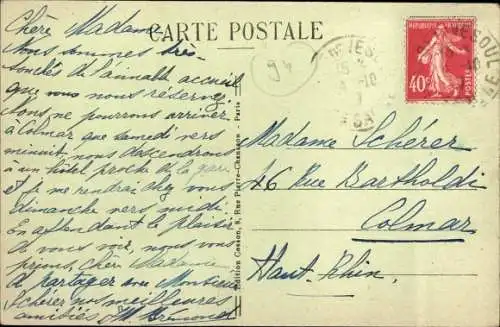 CARTE POSTALE
Chère Madame
Nous sommes très
touchés de l'aimable accueil
que vous nous réservez.
Nous ne pourrons arriver
à Colmar que samedi vers
minuit, nous descendrons
à un hôtel proche de la gare
et je me rendrai chez vous
dimanche vers midi.
En attendant le plaisir
de vous voir, nous vous
prions, chère Madame
de partager avec Monsieur
Schérer nos meilleures
amitiés
94
REPUBLIQUE FRANÇAISE
40c
POSTES
VESOUL
Edition Cesson, 8, Rue Pierre-Chausson - Paris
Madame Schérer
46 Rue Bartholdi
Colmar
Haut-Rhin